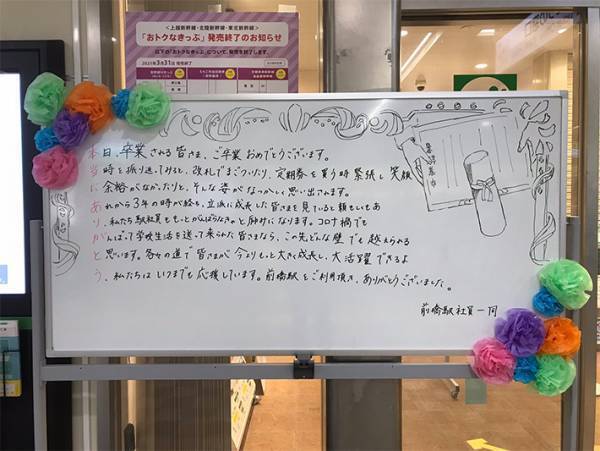 ＜上越新幹線・北陸新幹線・東北新幹線＞
「おトクなきっぷ」発売終了のお知らせ
以下の「おトクなきっぷ」について、発売を終了します。
2021年3月31日
本日、卒業される皆さま、ご卒業おめでとうございます。
当時を振り返ってみると、改札でまごついたり、定期券を買う時緊張し笑顔
に余裕がなかったりと、そんな姿がなつかしく思い出されます。
あれから3年の時が経ち、立派に成長した皆さまを見ていると頼もしくもあ
り、私たち駅社員ももっとがんばらなきゃと励みになります。コロナ禍でも
がんばって学校生活を送って来られた皆さまなら、この先どんな壁でも越えられる
と思います。各々の道で皆さまが今よりもっと大きく成長し、大活躍できるよ
う、私たちはいつまでも応援しています。前橋駅をご利用頂き、ありがとうございました。
前橋駅社員一同